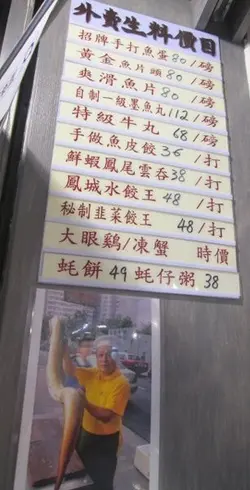 外賣生料價目
招牌手打魚蛋80/磅
黃金魚片頭80/磅
爽滑魚片80/磅
自制一級墨魚丸112/磅
特級牛丸68/磅
手做魚皮餃36/打
鮮蝦鳳尾雲吞38/打
鳳城水餃王48/打
秘制韭菜餃王48/打
大眼鷄/凍蟹 時價
蚝餅49蚝仔粥38